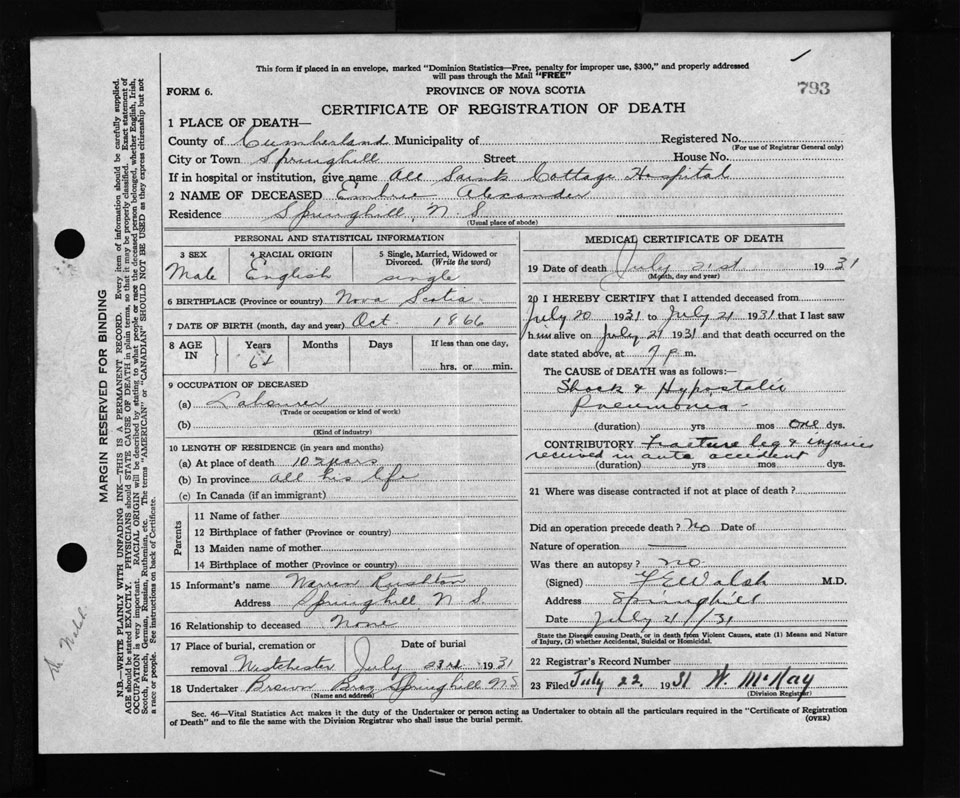 This form if placed in an envelope, marked "Dominion Statistics—Free, penalty for improper use, $300," and properly addressed
will pass through the Mail "FREE"
793
FORM 6.
PROVINCE OF NOVA SCOTIA
CERTIFICATE OF REGISTRATION OF DEATH
1 PLACE OF DEATH—
County of Cumberland Municipality of Registered No.
(For use of Registrar General only)
City or Town Springhill Street House No.
If in hospital or institution, give name All Saints Cottage Hospital
2 NAME OF DECEASED Embree Alexander
Residence Springhill, N.S.
(Usual place of abode)
PERSONAL AND STATISTICAL INFORMATION
3 SEX 4 RACIAL ORIGIN 5 Single, Married, Widowed or
Divorced. (Write the word)
Male English single
6 BIRTHPLACE (Province or country) Nova Scotia
7 DATE OF BIRTH (month, day and year) Oct 1866
8 AGE IN Years Months Days If less than one day,
hrs. or min.
9 OCCUPATION OF DECEASED
(a) Labourer
(Trade or occupation or kind of work)
(b)
(Kind of industry)
10 LENGTH OF RESIDENCE (in years and months)
(a) At place of death 10 years
(b) In province all his life
(c) In Canada (if an immigrant)
Parents
11 Name of father
12 Birthplace of father (Province or country)
13 Maiden name of mother
14 Birthplace of mother (Province or country)
15 Informant's name Warren Rushton
Address Springhill, N.S.
16 Relationship to deceased None
17 Place of burial, cremation or Date of burial
removal Westchester July 23rd 1931
18 Undertaker Brown Bros Springhill N.S
(Name and address)
MEDICAL CERTIFICATE OF DEATH
19 Date of death July 21st 1931
(Month, day and year)
20 I HEREBY CERTIFY that I attended deceased from
July 20 1931 to July 21 1931 that I last saw
him alive on July 21 1931 and that death occurred on
date stated above, at 9 p.m.
The CAUSE of DEATH was as follows:—
Shock & Hypostatic
Pneumonia
(duration) yrs mos one dys.
CONTRIBUTORY Fracture leg & injuries
received in auto accident
(duration) yrs mos dys.
21 Where was disease contracted if not at place of death?
Did an operation precede death? No Date of
Nature of operation —
Was there an autopsy? NO
(Signed) F.E. Walsh M.D.
Address Springhill
Date July 21/31
State the Disease causing Death, or in death from Violent Causes, state (1) Means and Nature
of Injury, (2) whether Accidental, Suicidal or Homicidal.
22 Registrar's Record Number
23 Filed July 22. 1931 W. McKay
(Division Registrar)
Sec. 46—Vital Statistics Act makes it the duty of the Undertaker or person acting as Undertaker to obtain all the particulars required in the "Certificate of Registration
of Death" and to file the same with the Division Registrar who shall issue the burial permit.
(OVER)
MARGIN RESERVED FOR BINDING
N.B.—WRITE PLAINLY WITH UNFADING INK—THIS IS A PERMANENT RECORD. Every item of information should be carefully supplied.
AGE should be stated EXACTLY. PHYSICIANS should STATE CAUSE OF DEATH in plain terms, so that it may be properly classified. Exact statement of
OCCUPATION is very important. RACIAL ORIGIN will be described by stating to what people or race the deceased person belonged, whether English, Irish,
Scotch, French, German, Russian, Ruthenian, etc. The terms "AMERICAN" or "CANADIAN" SHOULD NOT BE USED as they express citizenship but not
a race or people. See instructions on back of Certificate.